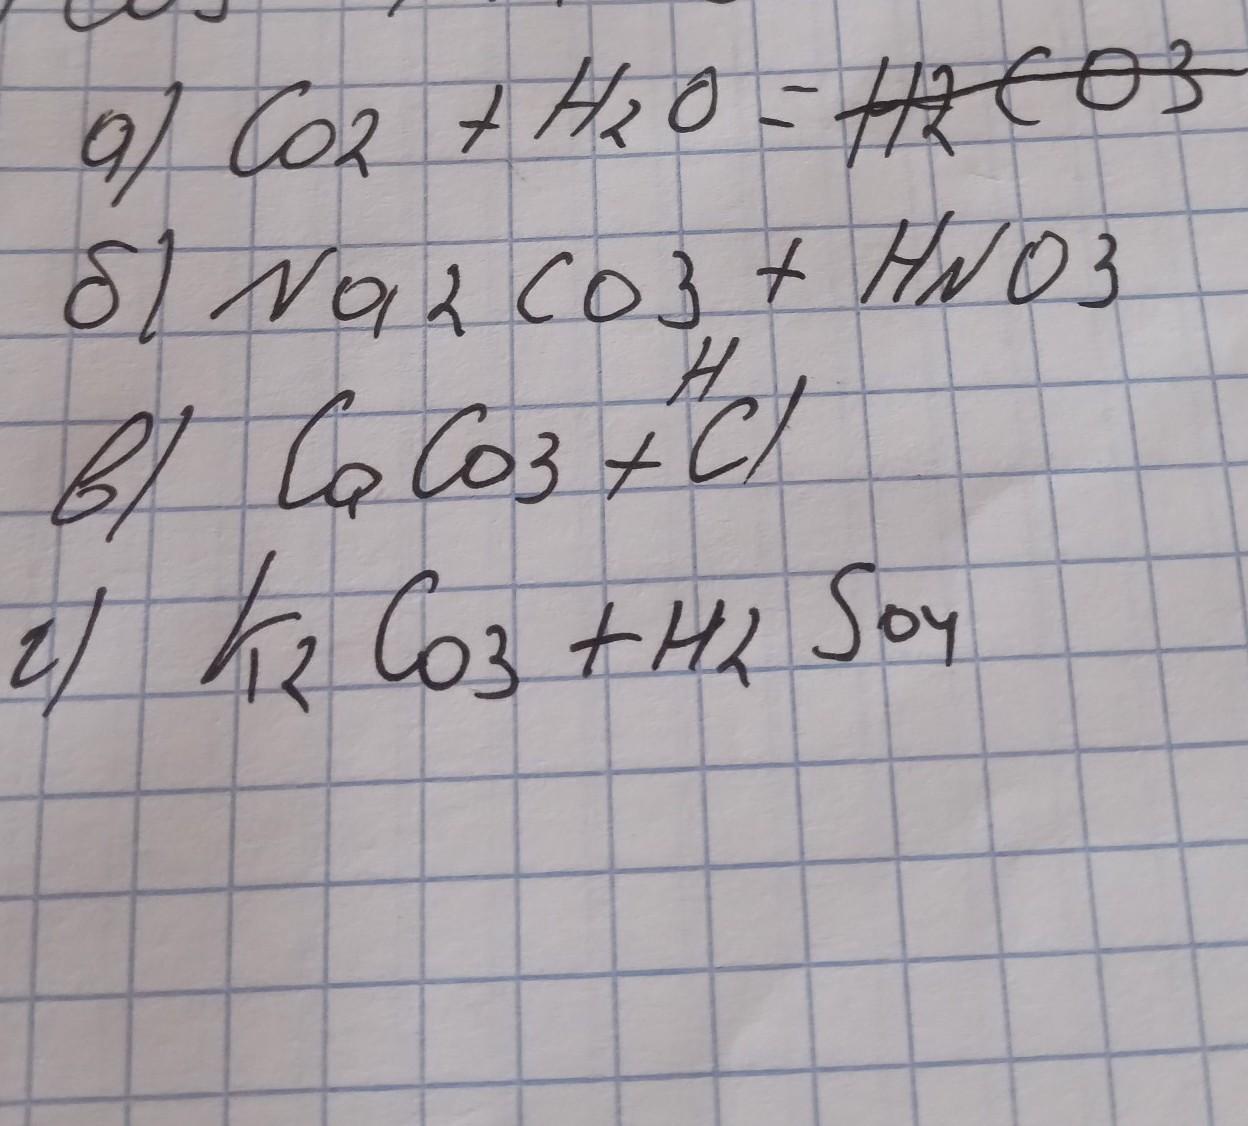 а) CO2 + H2O = H2CO3
б) Na2CO3 + HNO3
в) CaCO3 + HCl
г) K2CO3 + H2SO4